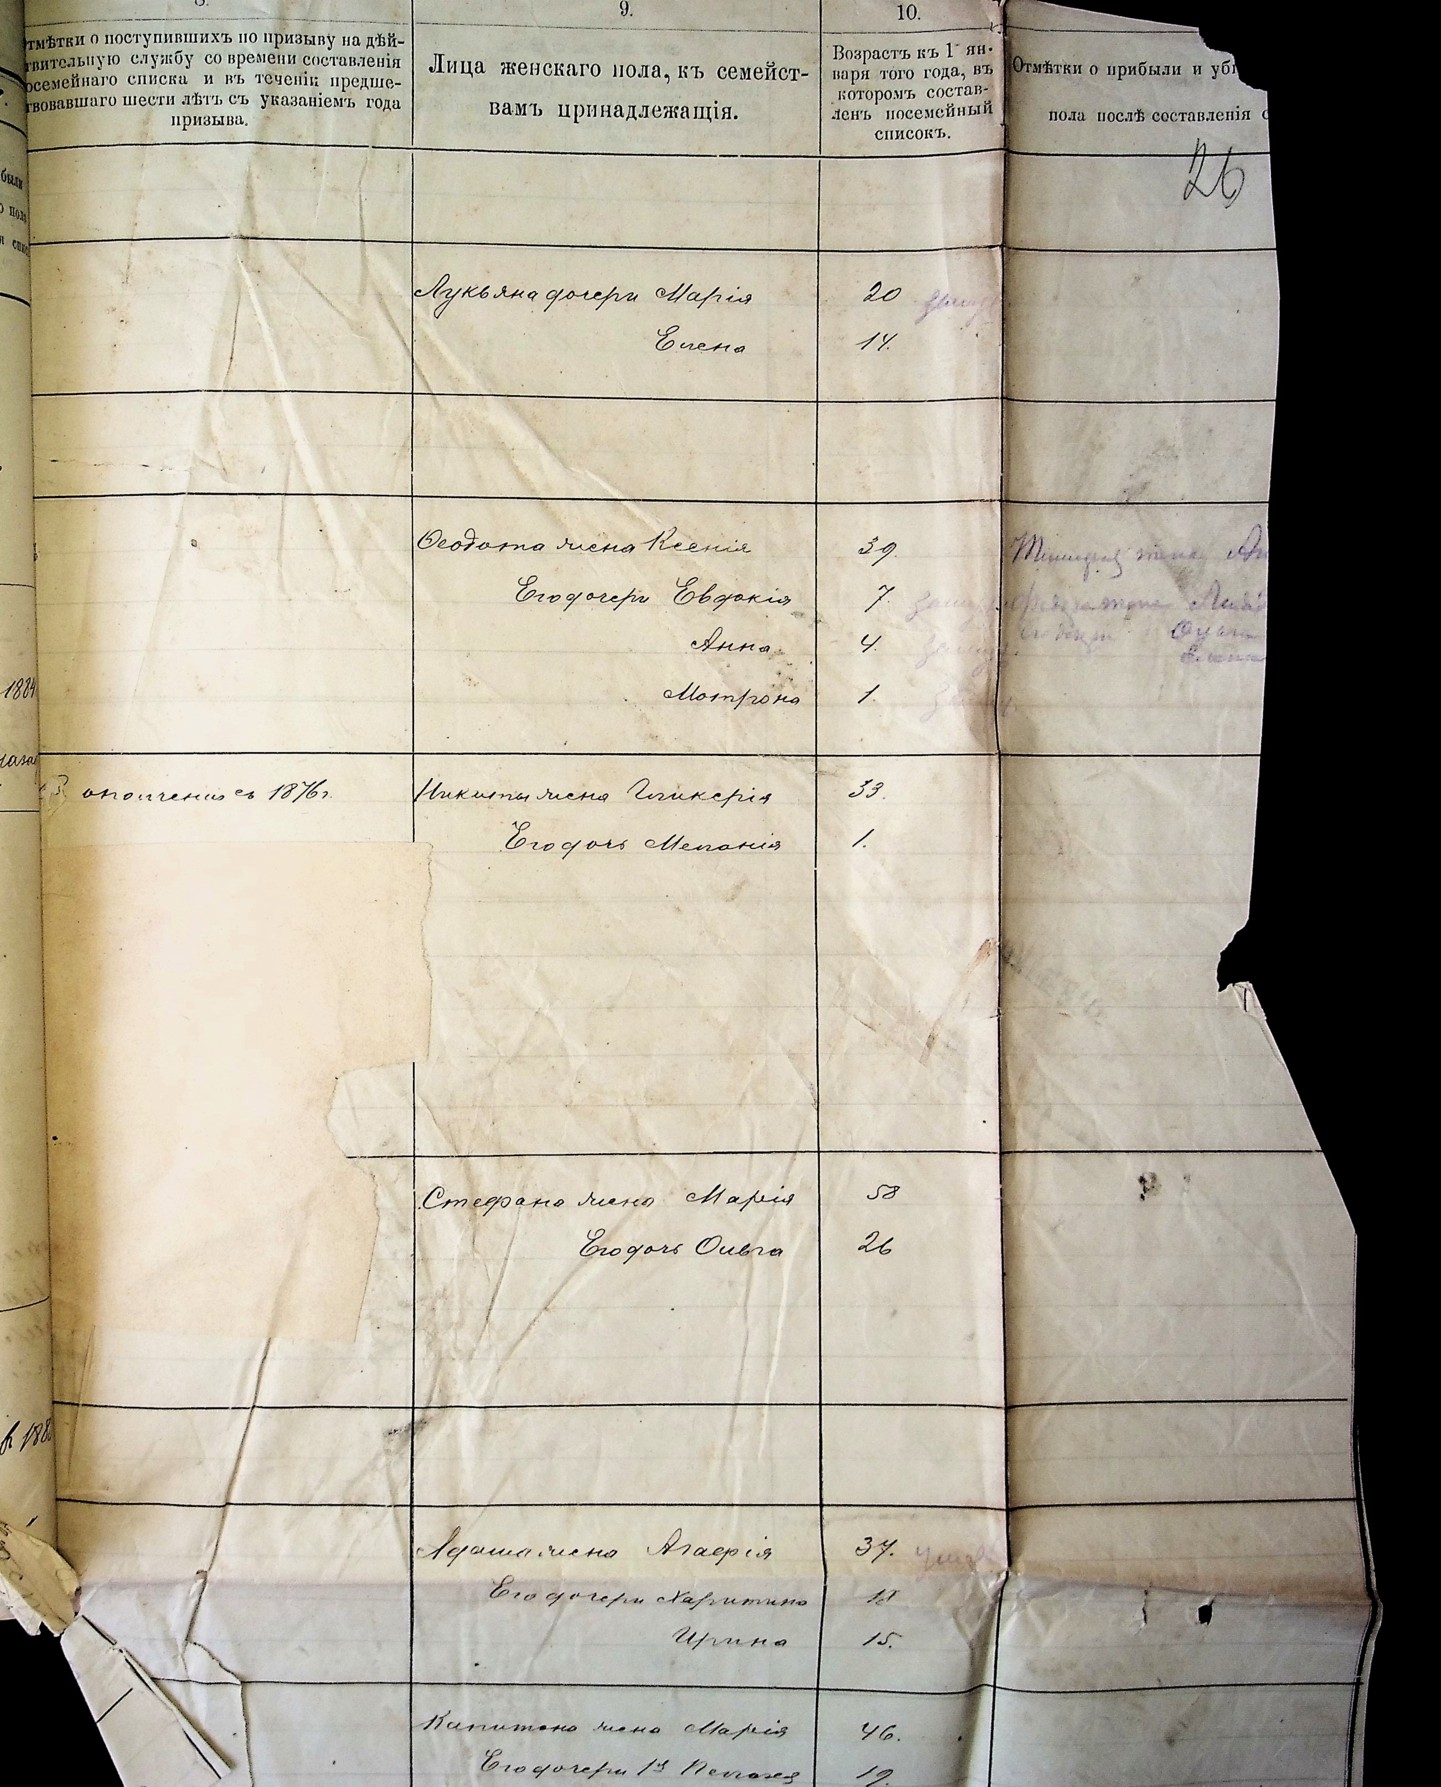 9.
10.
тмѣтки о поступившихъ по призыву на дѣй-
твительную службу со времени составленія
осемейнаго списка и въ теченіи предше-
твовавшаго шести лѣтъ съ указаніемъ года
призыва.
Лица женскаго пола, къ семейст-
вамъ принадлежащія.
Возрастъ къ 1 ян-
варя того года, въ
которомъ состав-
ленъ посемейный
списокъ.
Отмѣтки о прибыли и уб
пола послѣ составленія с
26
Лукьяна дочери Марія 20
Елена 14.
Ѳеодота жена Ксенія 39.
Его дочери Евдокія 7.
Анна 4.
Мотрона 1.
1884
ополченія съ 1876 г.
Никиты жена Гликерія 33.
Его дочь Меланія 1.
Стефана жена Марія 58
Его дочь Ольга 26
188
Адама жена Агафія 37.
Его дочери Харитина
Ирина 15.
Капитона жена Марія 46.
Его дочери 1й Пелагея 19.